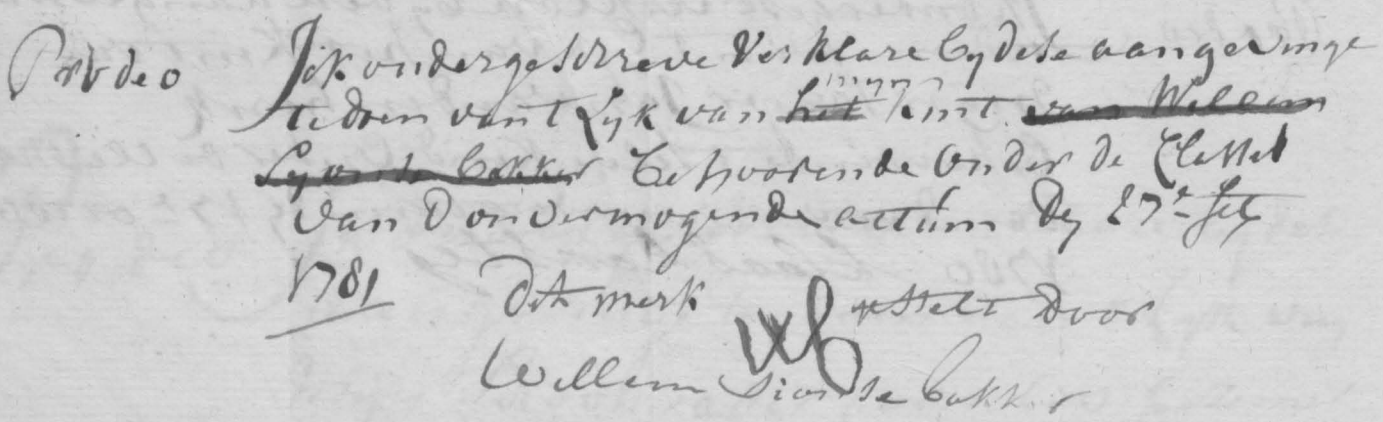 Pro deo Ick ondergeschreve Verklare by dese aangevinge
te doen van t Lyk van het mynn kint van Willem
behoorende onder de Classes
van D onvermogende actum Dey 27e
1781 Dit merk WB gestelt Door
Willem bakker